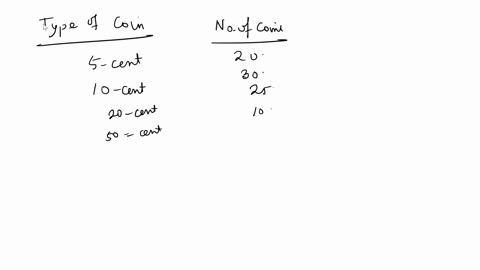 Type of Coin No. of Coins
5-cent 20
30
10-cent 25
20-cent 10
50-cent